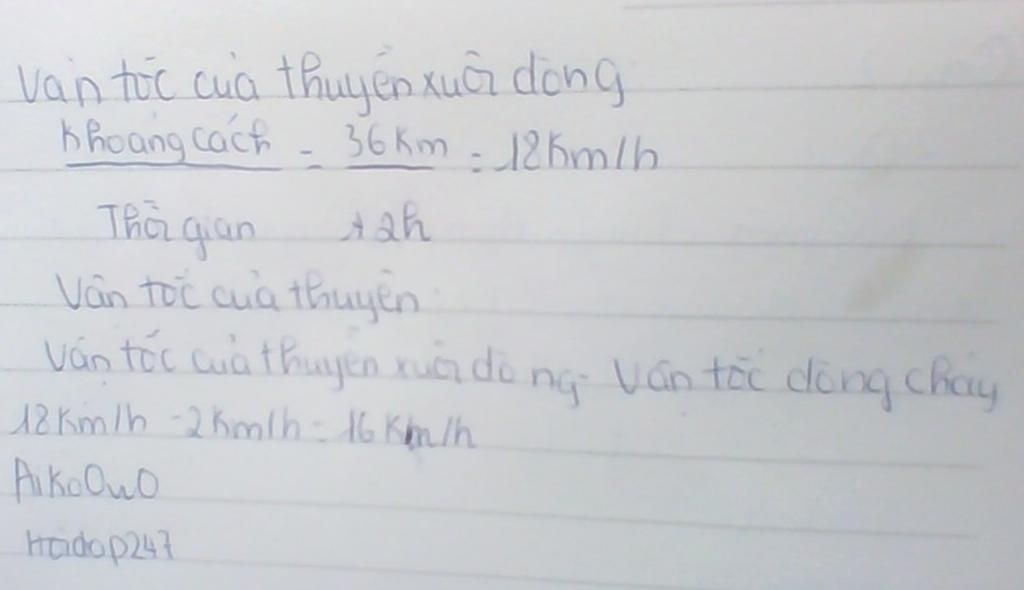 Vận tốc của thuyền xuôi dòng
Khoảng cách = 36 Km = 18 Km/h
Thời gian 2h
Vân tốc của thuyền
Vận tốc của thuyền xuôi dòng - Vân tốc dòng chảy
18 Km/h - 2 Km/h = 16 Km/h
AikoOwO
Hoidap247